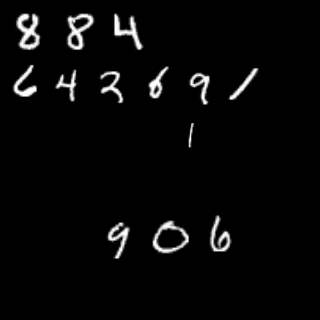 884
642691
1
906